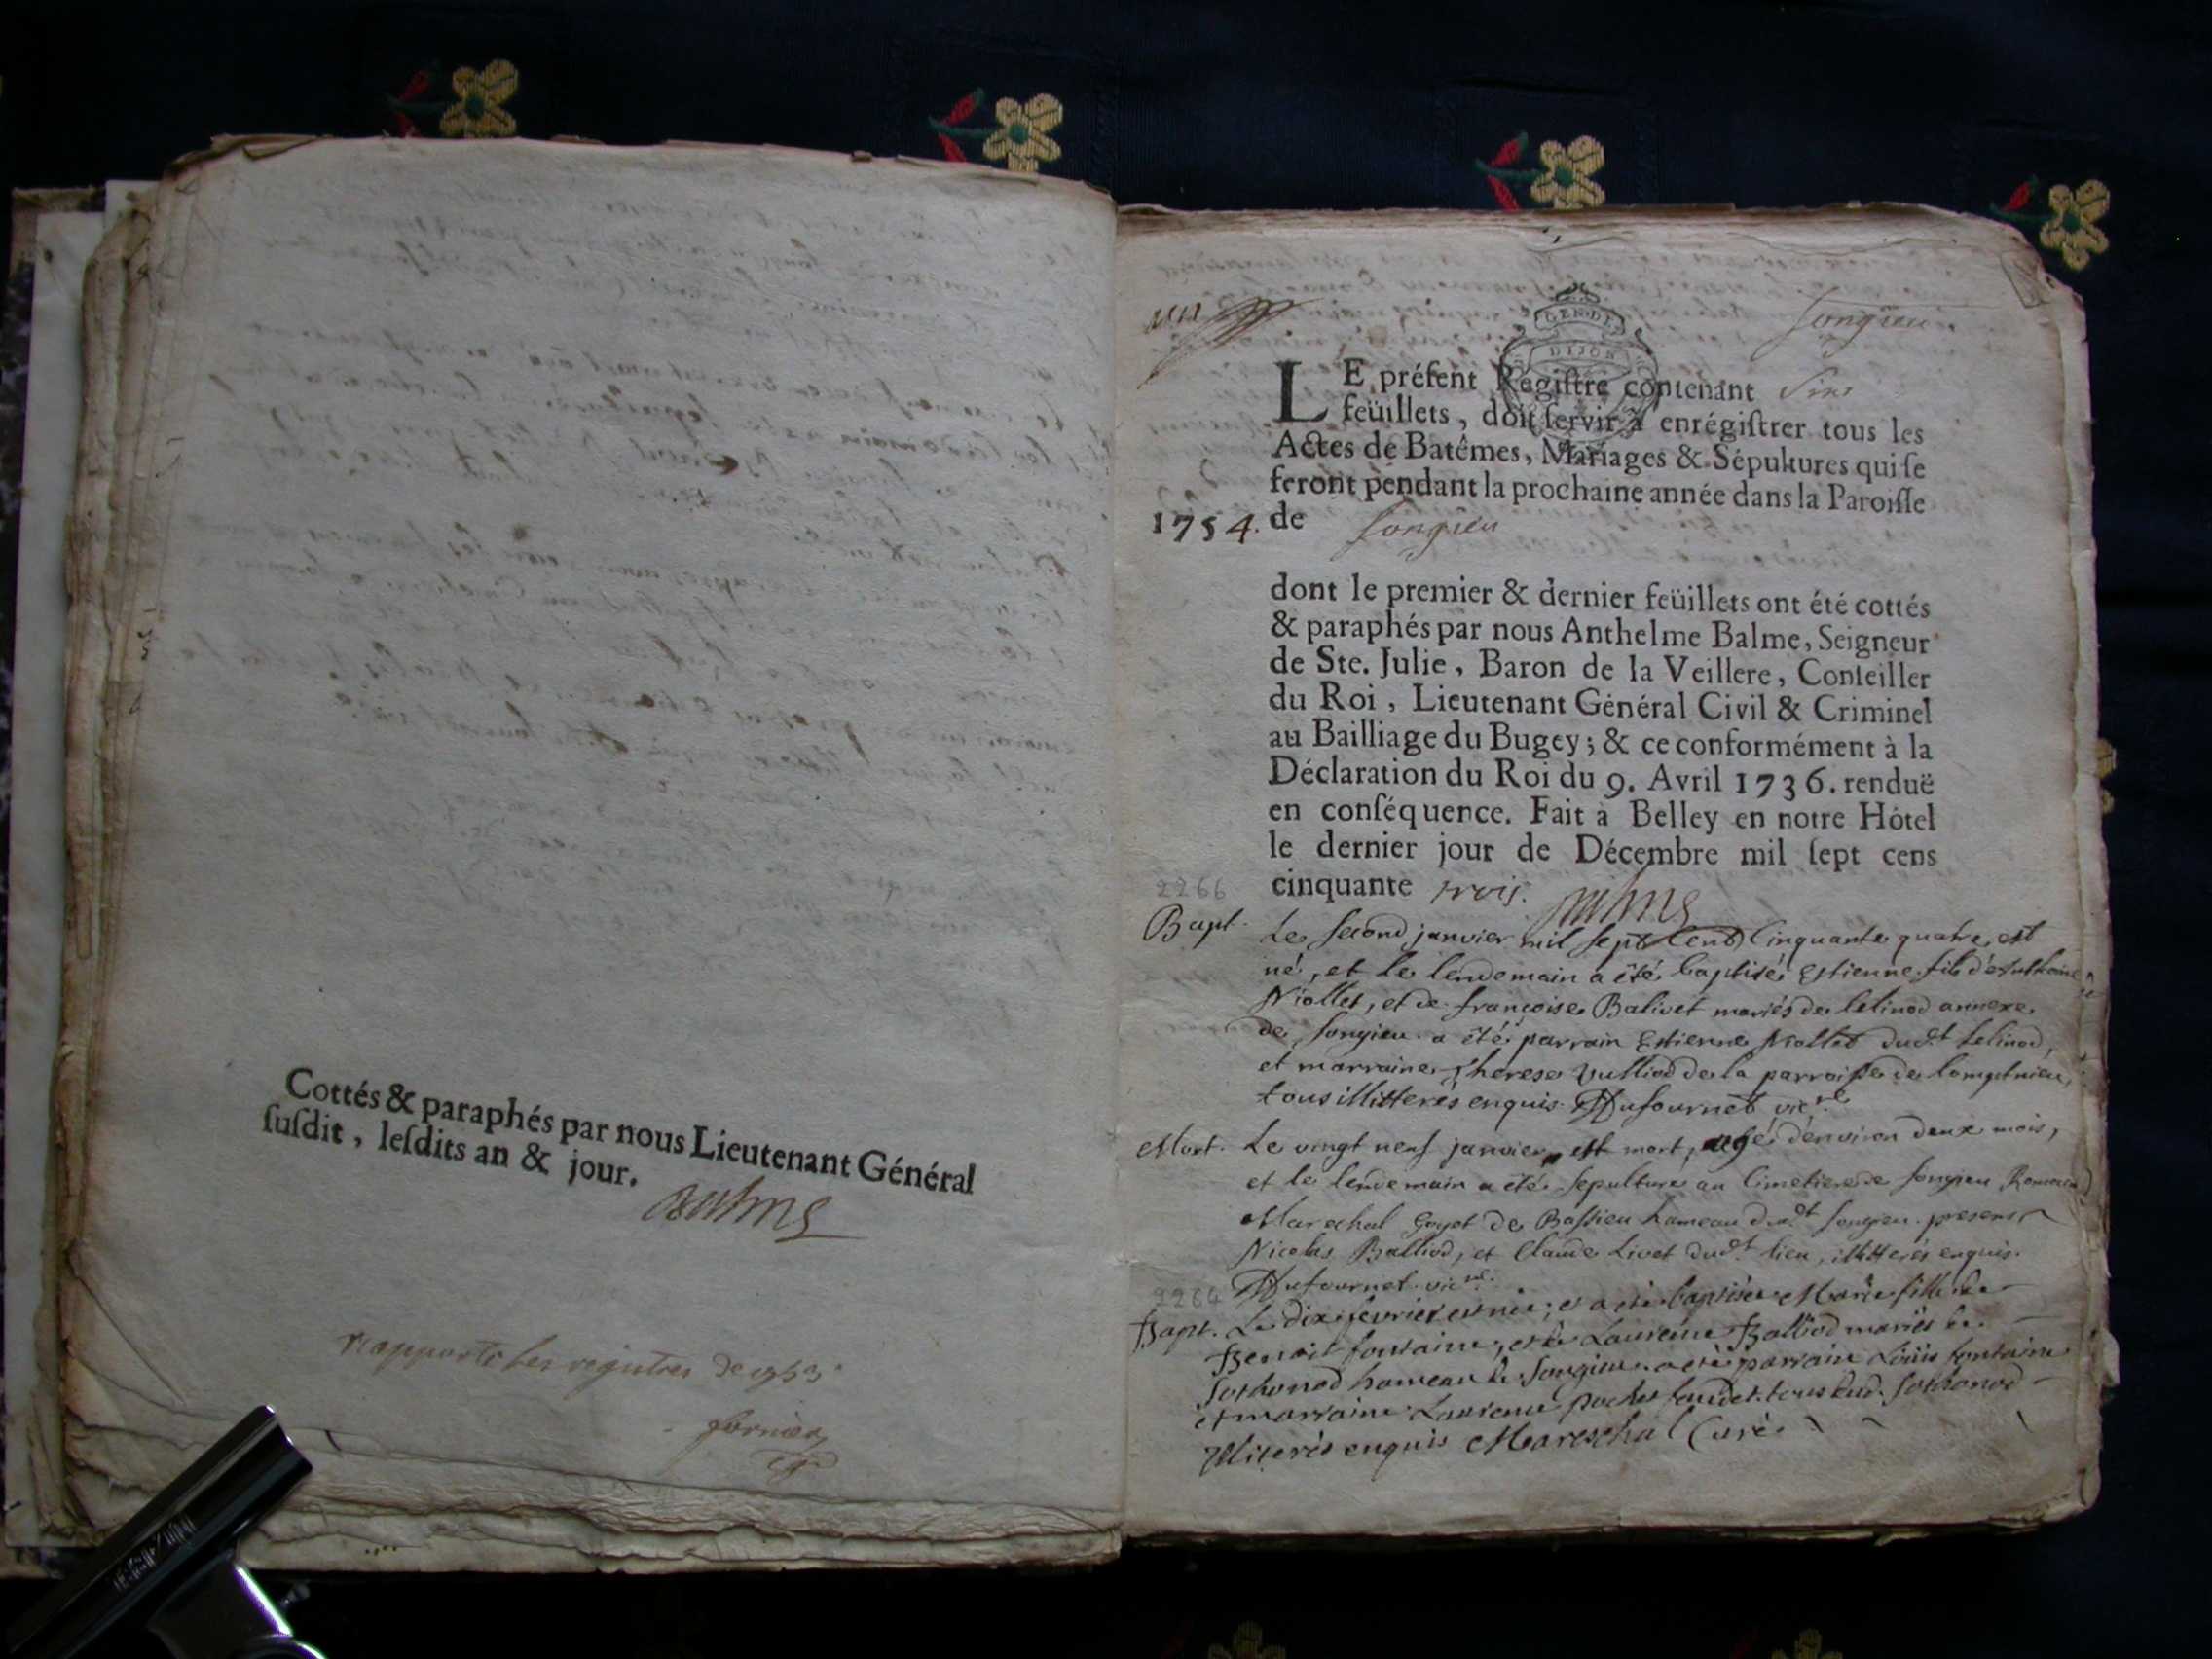 Cottés & paraphés par nous Lieutenant Général
ſuſdit, leſdits an & jour.
Balme
rapporté les registres de 1753
GEN. DE
DIJON
Songieu
LE préſent Regiſtre contenant
feüillets, doit ſervir à enrégiſtrer tous les
Actes de Batêmes, Mariages & Sépultures qui ſe
feront pendant la prochaine année dans la Paroiſſe
1754. de Songieu
dont le premier & dernier feüillets ont été cottés
& paraphés par nous Anthelme Balme, Seigneur
de Ste. Julie, Baron de la Veillere, Conſeiller
du Roi, Lieutenant Général Civil & Criminel
au Bailliage du Bugey; & ce conformément à la
Déclaration du Roi du 9. Avril 1736. renduë
en conſéquence. Fait à Belley en notre Hôtel
le dernier jour de Décembre mil ſept cens
2266 cinquante trois. Balme
Bapt. Le second janvier mil sept cent cinquante quatre est
né, et le lendemain a été baptisé Estienne fils d'Anthoine
Niollet, et de françoise Balivet mariés de lelinod annexe
de Songieu a été parrain Estienne Niollet dudt lelinod,
et marraine Therese Vulliod de la parroisse de lompnieu,
tous illitterés enquis. Dufournet vicre
Mort. Le vingt neuf janvier est mort, agé d'environ deux mois,
et le lendemain a été sepulturé au cimetiere de songieu
Marechal Goyet de Bassieu hameau dudt songieu presens
Nicolas Balliod, et Claude Livet dudt lieu, illitterés enquis.
2264 Dufournet vicre.
Bapt. Le dix fevrier est née, et a été baptisée Marie fille de
Benoit fontaine, et de Laurence Balliod mariés de
Sothonod hameau de Songieu. a été parrain Loüis fontaine
et marraine Laurence tous dud. Sothonod
Illiterés enquis Mareschal Curé